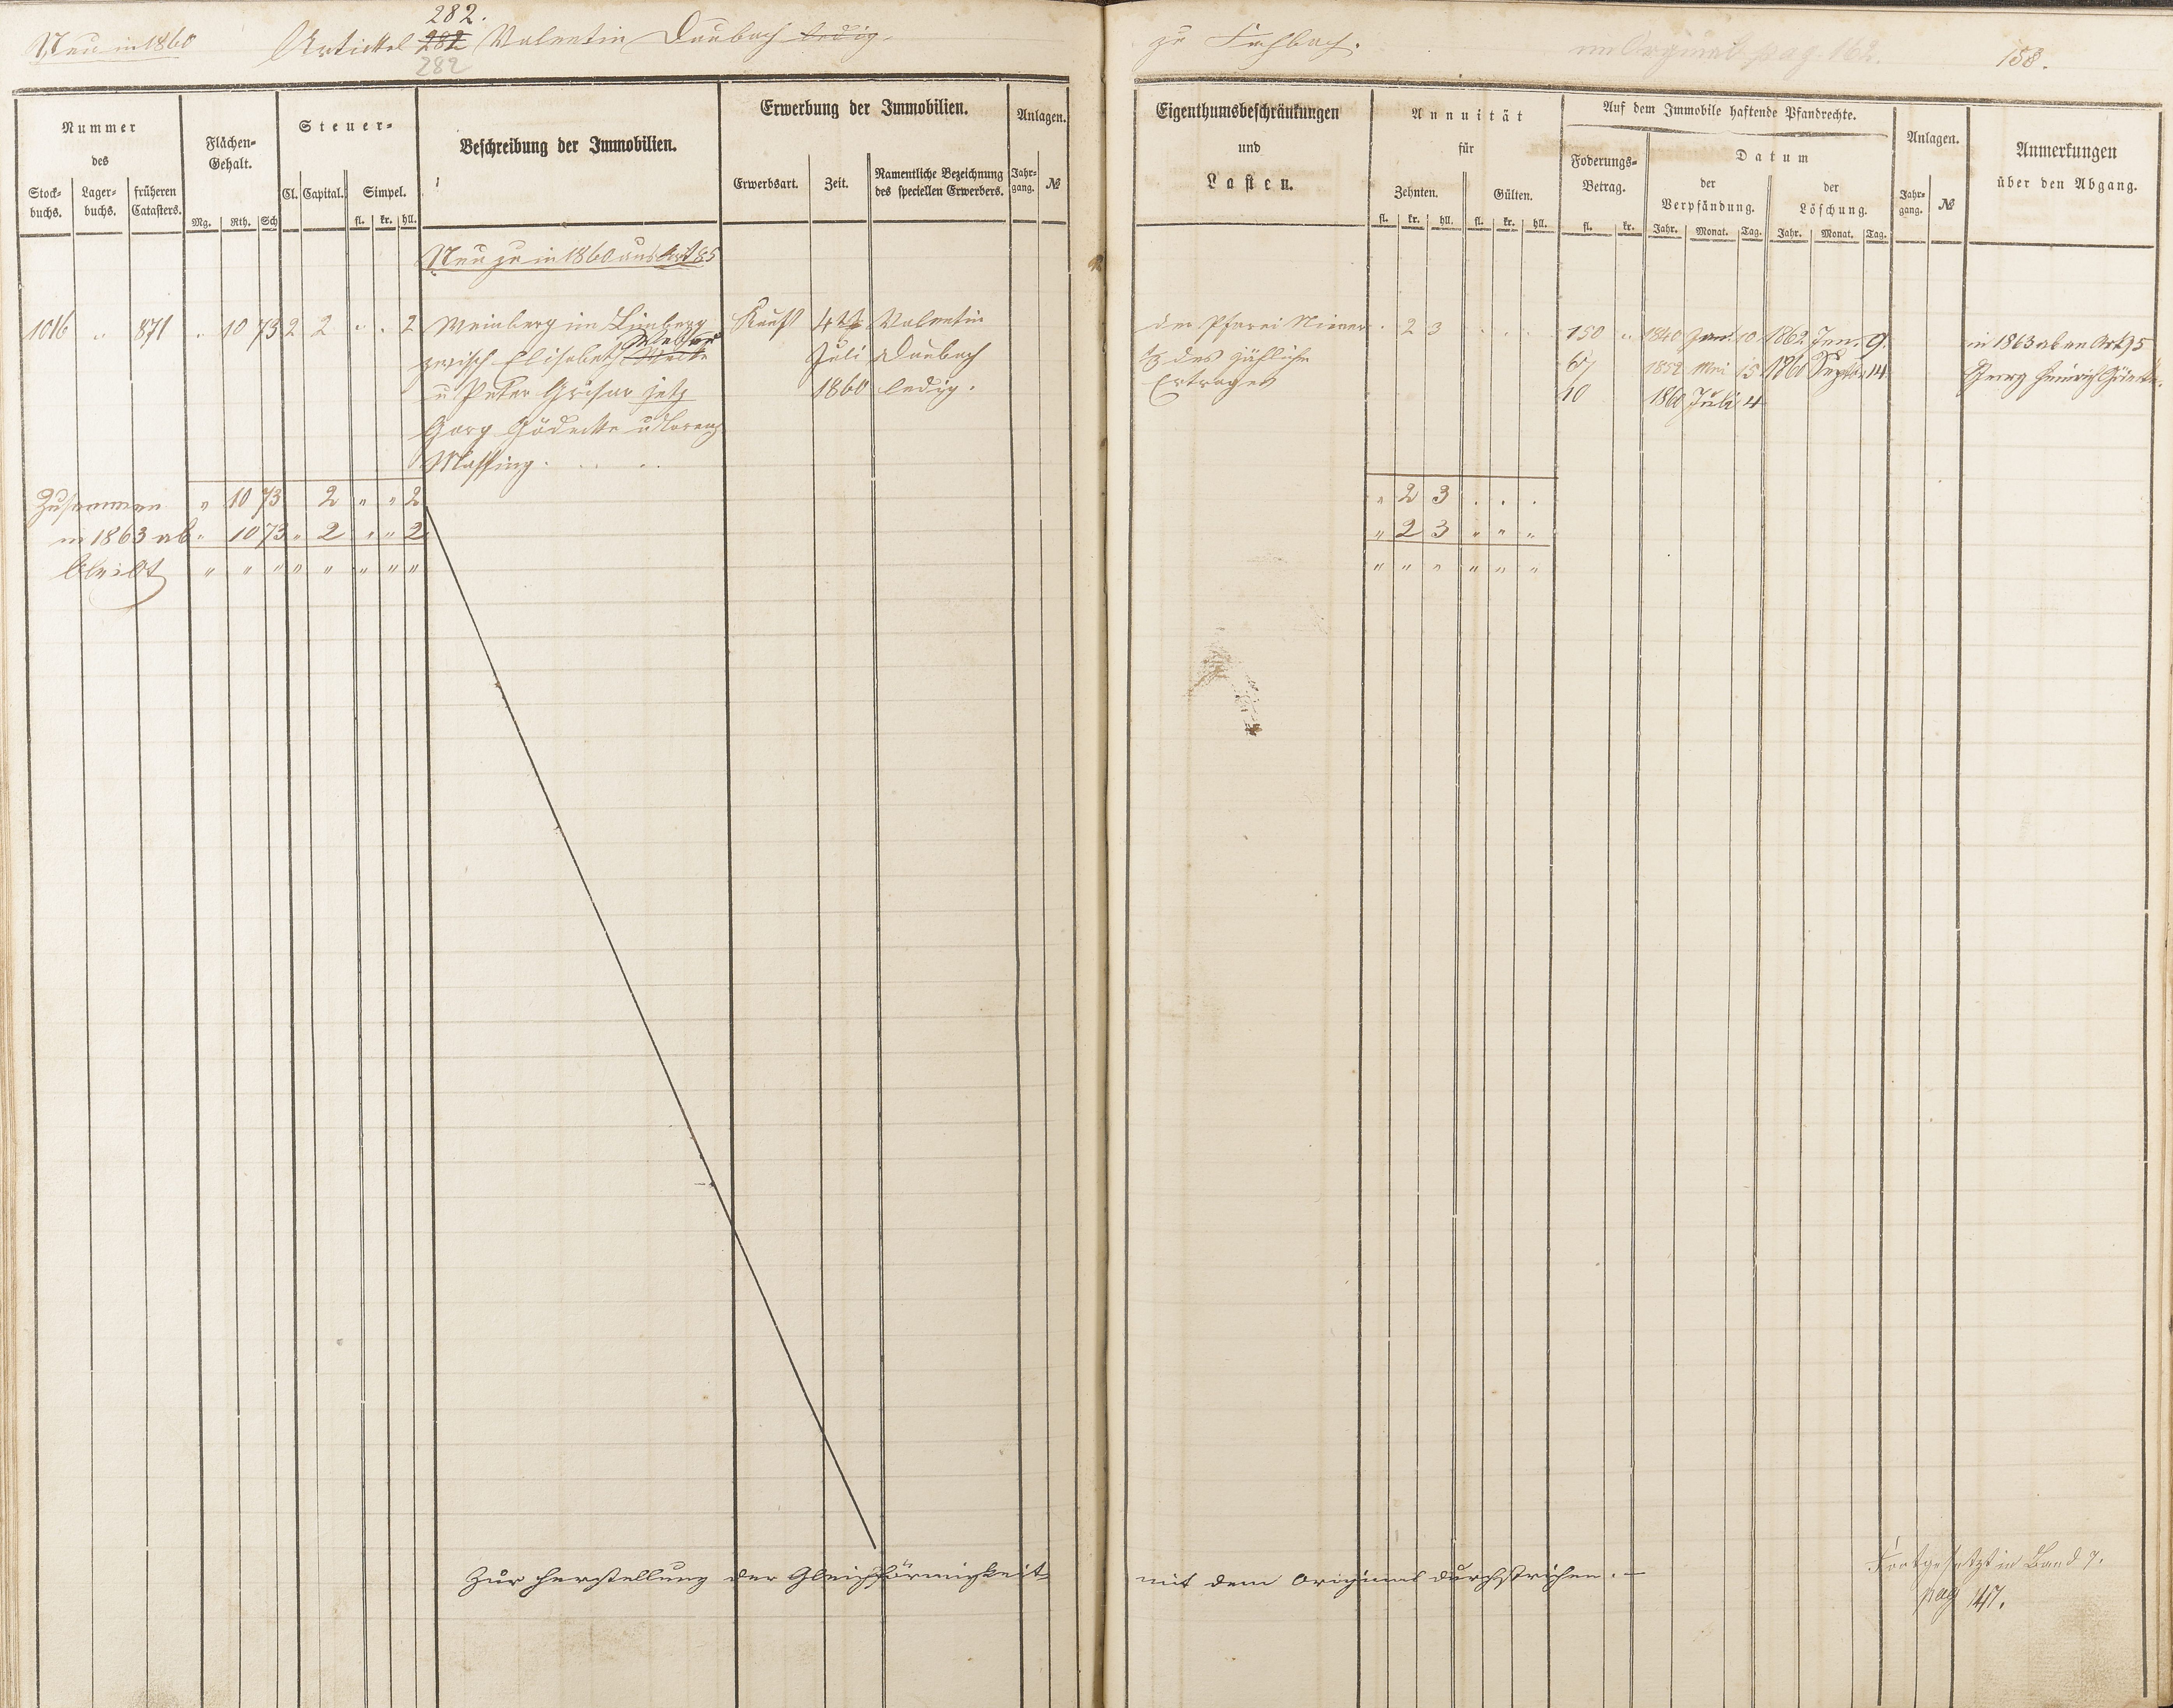 282.
Neu in 1860 Artikel 282 Valentin Daubach ledig.
282
zu Fachbach.
im Original pag. 162.
158.
Nummer
des
Stock-
buchs.
Lager-
buchs.
früheren
Catasters.
Flächen-
Gehalt.
Mg. Rth. Sch
Steuer-
Cl. Capital. Simpel.
fl. kr. hll.
Beschreibung der Immobilien.
Erwerbung der Immobilien.
Erwerbsart. Zeit.
Namentliche Bezeichnung
des speciellen Erwerbers.
Anlagen.
Jahr-
gang.
№
Eigenthumsbeschränkungen
und
Lasten.
Annuität
für
Zehnten. Gülten.
fl. kr. hll. fl. kr. hll.
Auf dem Immobile haftende Pfandrechte.
Foderungs-
Betrag.
fl. kr.
Datum
der
Verpfändung.
Jahr. Monat. Tag.
der
Löschung.
Jahr. Monat. Tag.
Anlagen.
Jahr-
gang.
№
Anmerkungen
über den Abgang.
Neu zu in 1860 aus Art 85
1016 " 871 " 10 73 2 2 " . 2 Weinberg im Limberg Kauf 4ten Valentin
zwisch Elisabeth Juli Daubach
u Peter Grisar jetz 1860 ledig.
Georg Gödecke u Lorenz
Massing . . . .
der Pfarrei Niever . 2 3 . . . 150 " 1840 Jan. 10 1862 Jan. 9. in 1863 ab an Art 95
1/3 des jährliche 67 1852 Mai 15 1860 Septbr 14 Georg Heinrich Gödecke.
Ertrages 10 1860 Juli 4
Zusammen " 10 73 2 " " 2 " 2 3 . . .
in 1863 ab " 10 73 " 2 " " 2 " 2 3 " " "
bleibt " " " " " " " " " " " " " "
Zur Herstellung der Gleichförmigkeit mit dem Original durchstrichen. —
Fortgesetzt in Band 7.
pag 147.